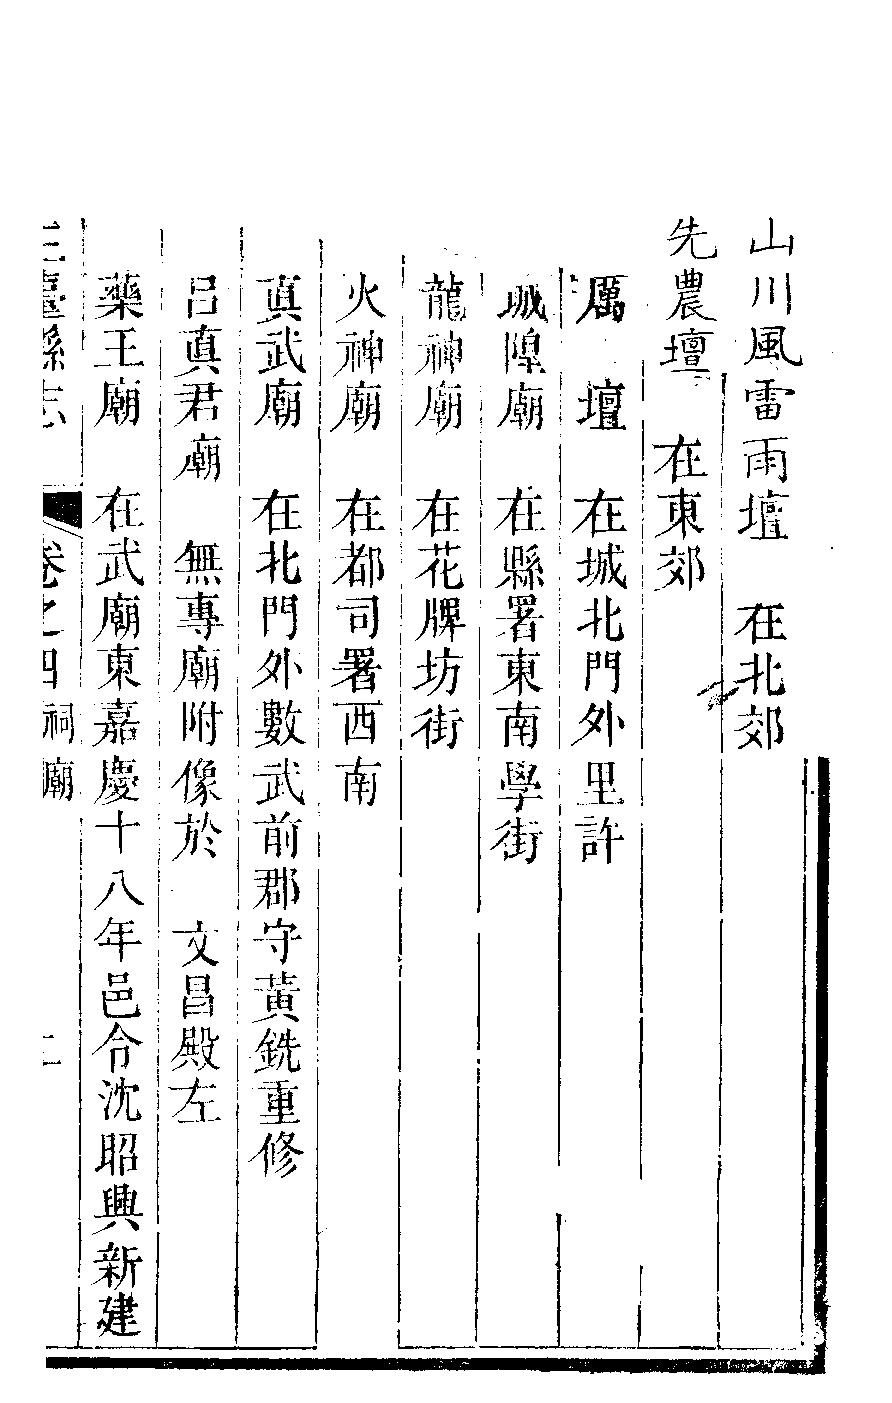 山川風雷雨壇　在北郊
先農壇　在東郊
厲　壇　在城北門外里許
城隍廟　在縣署東南學街
龍神廟　在花牌坊街
火神廟　在都司署西南
真武廟　在北門外數武前郡守黃銑重修
呂真君廟　無專廟附像於　文昌殿左
藥王廟　在武廟東嘉慶十八年邑令沈昭興新建
三臺縣志　卷之四　祠廟